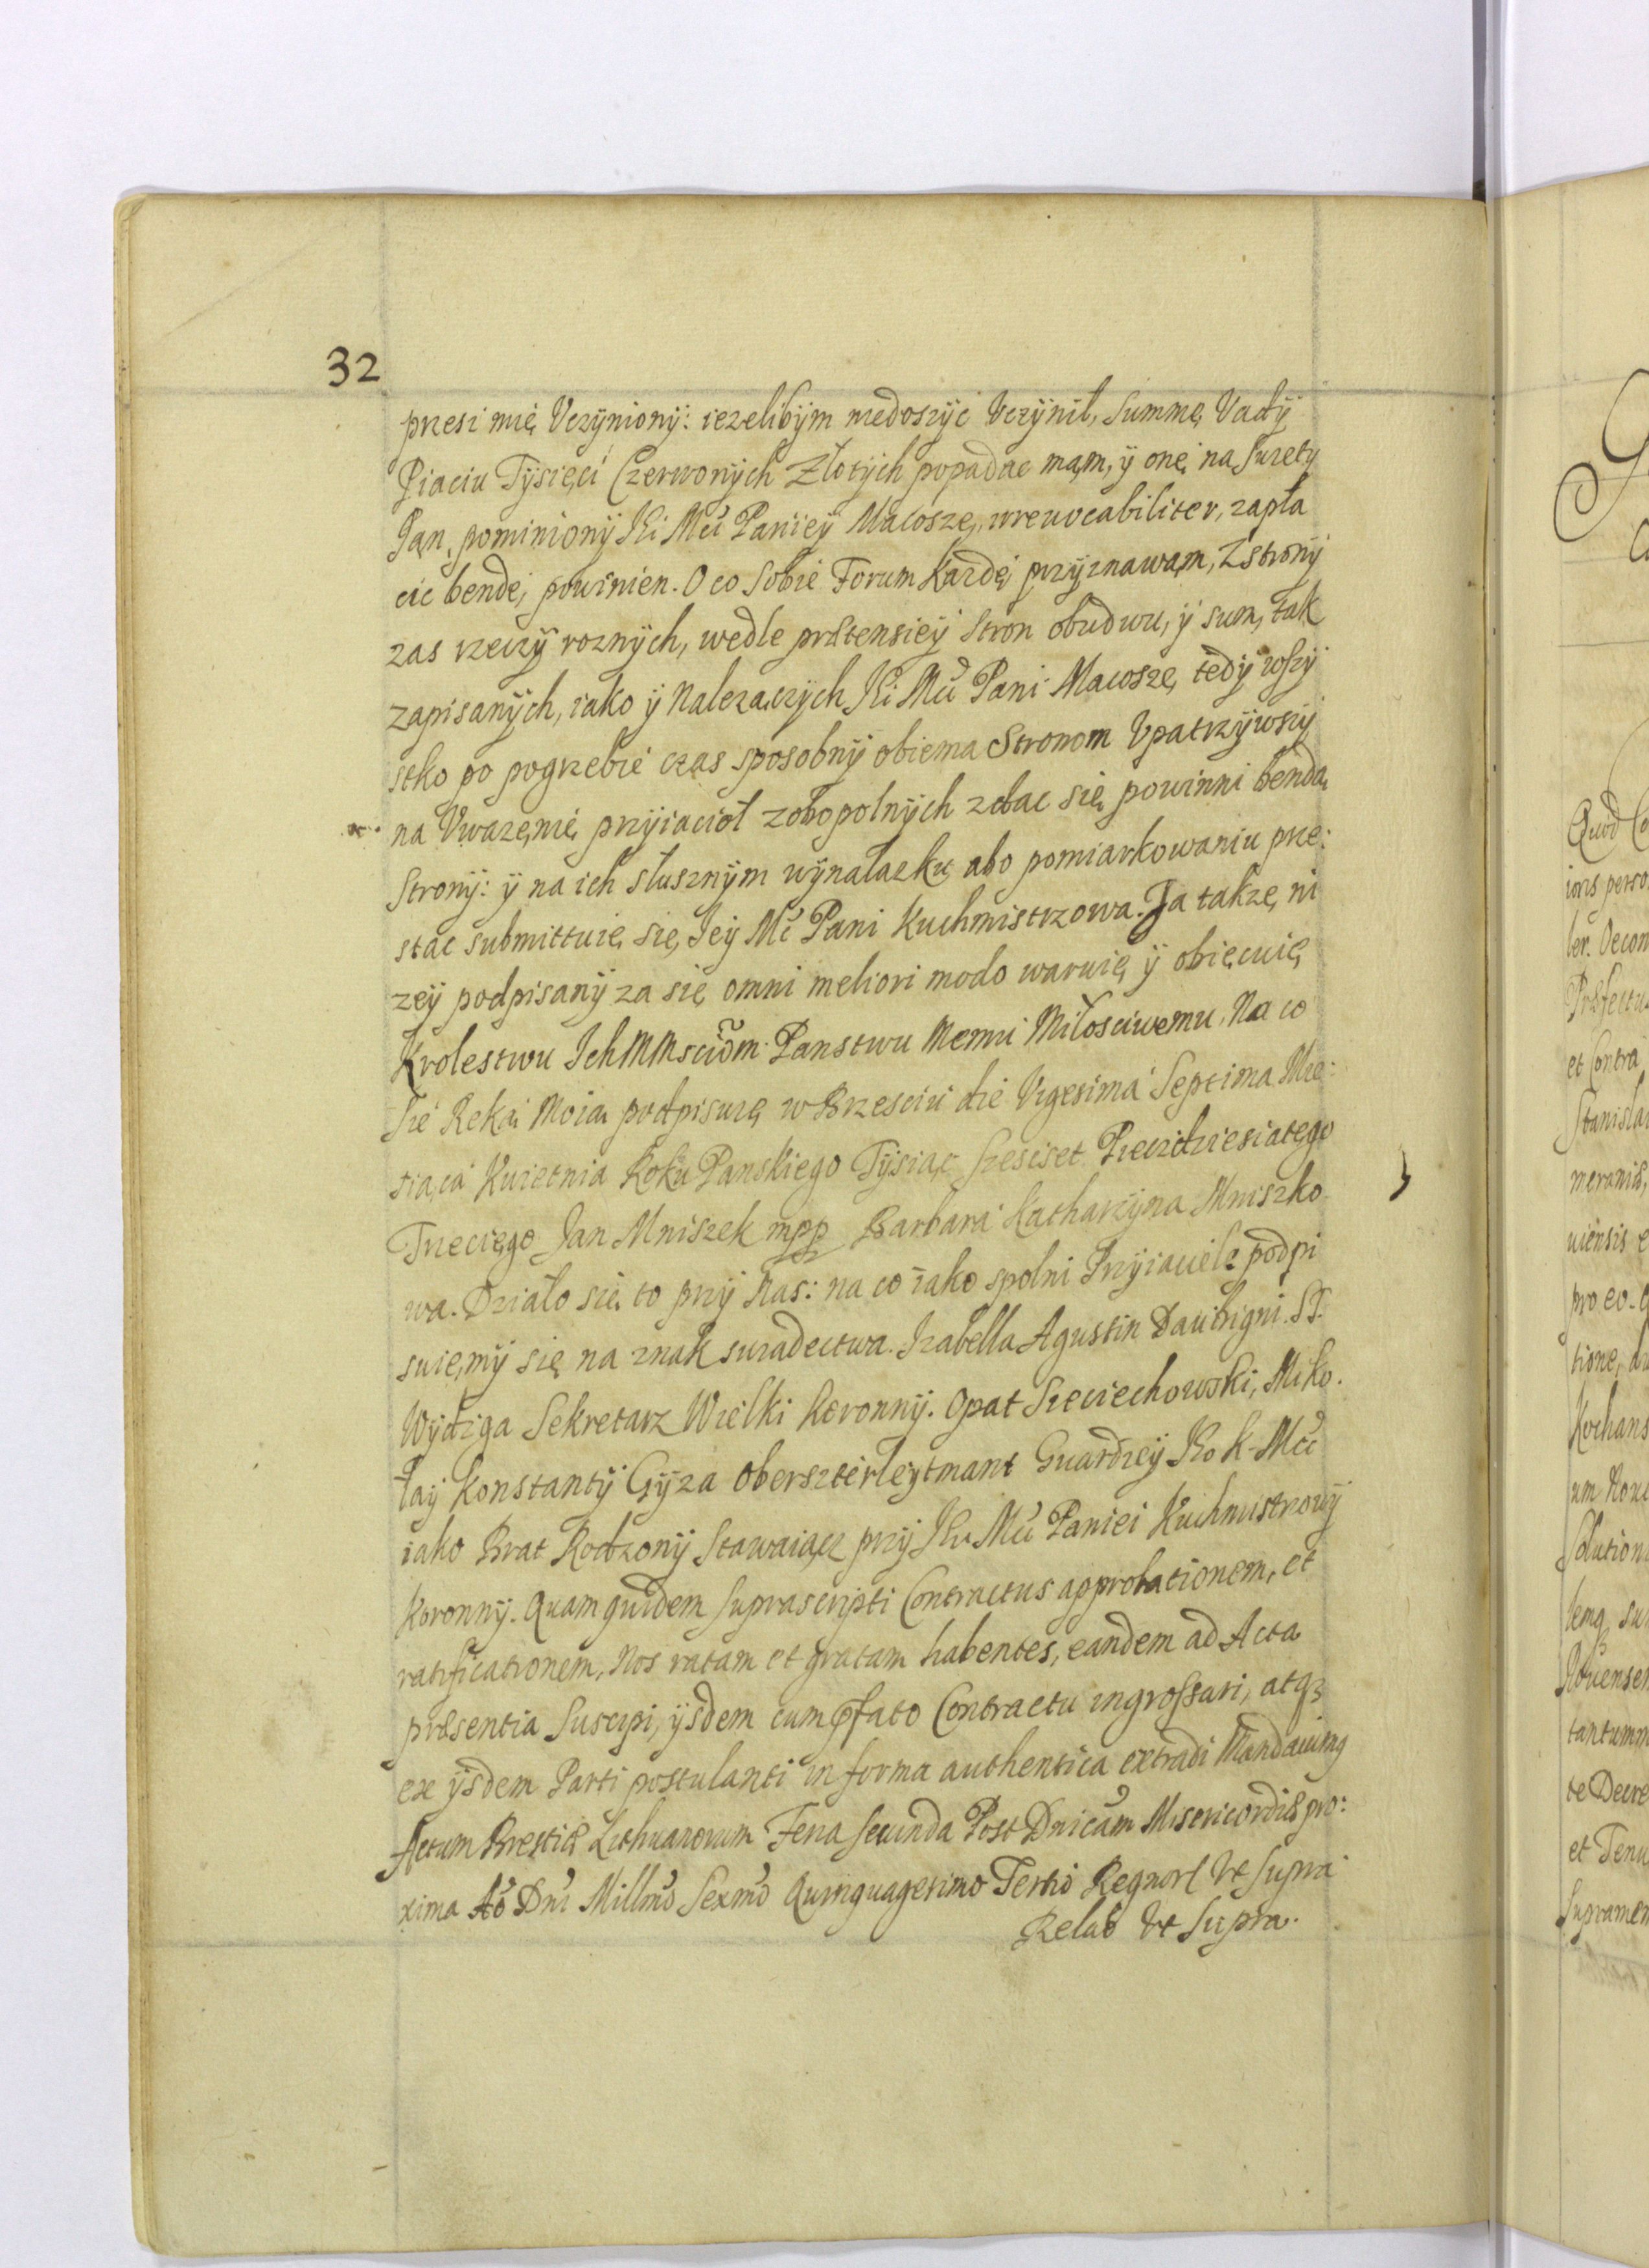 32
przesi mię Vczÿnionÿ: iezelibÿm niedoszÿć Vczÿnił, Summę Vadÿ
Piaciu Tÿsięci Czerwonÿch Złotÿch popadac mąm, ÿ onę na Swięty
Jąn, pominionÿ JKi Mći Panieÿ Macoszę, irreuocabiliter, zapła
cic bendę, powinien. O co Sobie Forum Kazde przÿznawąm, Z stronÿ
zas rzeczÿ roznÿch, wedle prætensieÿ Stron obudwu, ÿ sum, tak
zapisanÿch, iako ÿ Nalezączÿch JKi Mći Pani Macosze, tedÿ wszÿ
stko po pogrzebie czas sposobnÿ obiema Stronom Vpatrzÿwszÿ
na Vwazęnie przÿiaciół zobopolnÿch zdac się powinni bendą
Stronÿ: ÿ na ich słusznÿm wÿnalazku abo pomiarkowaniu prze:
stac submittuię się, Jeÿ Mć Pani Kuchmistrzowa. Ja takze, ni
zeÿ podpisanÿ za się omni meliori modo waruię ÿ obięcuię
Krolestwu Ich MMsciom Panstwu Memu Miłosciwemu. Na co
Się Reką Moią podpisuię w Brzesciu die Vigesima Septima Mie:
siąca Kwietnia Roku Panskiego Tÿsiąc szescset Piecidziesiatęgo
Trzecięgo Jan Mniszek mpp Barbara Katharzÿna Mniszko
wa. Działo się to przÿ Nas: na co iako spolni Przÿiaciele podpi
suięmÿ się na znak swiadectwa. Izabella Agustin Daubigni. St.
Wÿdzga Sekretarz Wielki Koronnÿ. Opat Sieciechowski, Miko.
łaÿ Konstantÿ Gÿza Oberszterleÿtmant Guardieÿ JKo K Mći
iako Brat Rodzonÿ Stawaiącz przÿ JKi Mći Paniei Kuchmistrzowÿ
Koronnÿ. Quam quidem suprascripti Contractus approbationem, et
ratificationem, Nos ratam et gratam habentes, eandem ad Acta
præsentia Suscipi, ÿsdem cum pfato Contractu ingrossari, atq3
ex ÿsdem Parti postulanti in forma authentica extradi Mandauimq
Actum Brestiæ Lithuanorum Feria Secunda Post Dnicam Misericordiæ pro:
xima Ao Dni Millmo Sexmo Quinquagesimo Tertio Regnor Vt Supra
Relao Vt Supra.